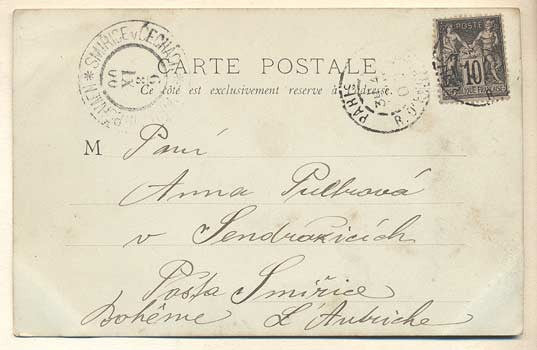 SMIŘICE V ČECHÁCH
6 IX 00
PARIS
POSTE
10
RÉPUBLIQUE FRANÇAISE
CARTE POSTALE
Ce côté est exclusivement réservé à l'adresse.
M Paní
Anna Pultrová
v Sendražicích
Pošta Smiřice
Bohême L'Autriche